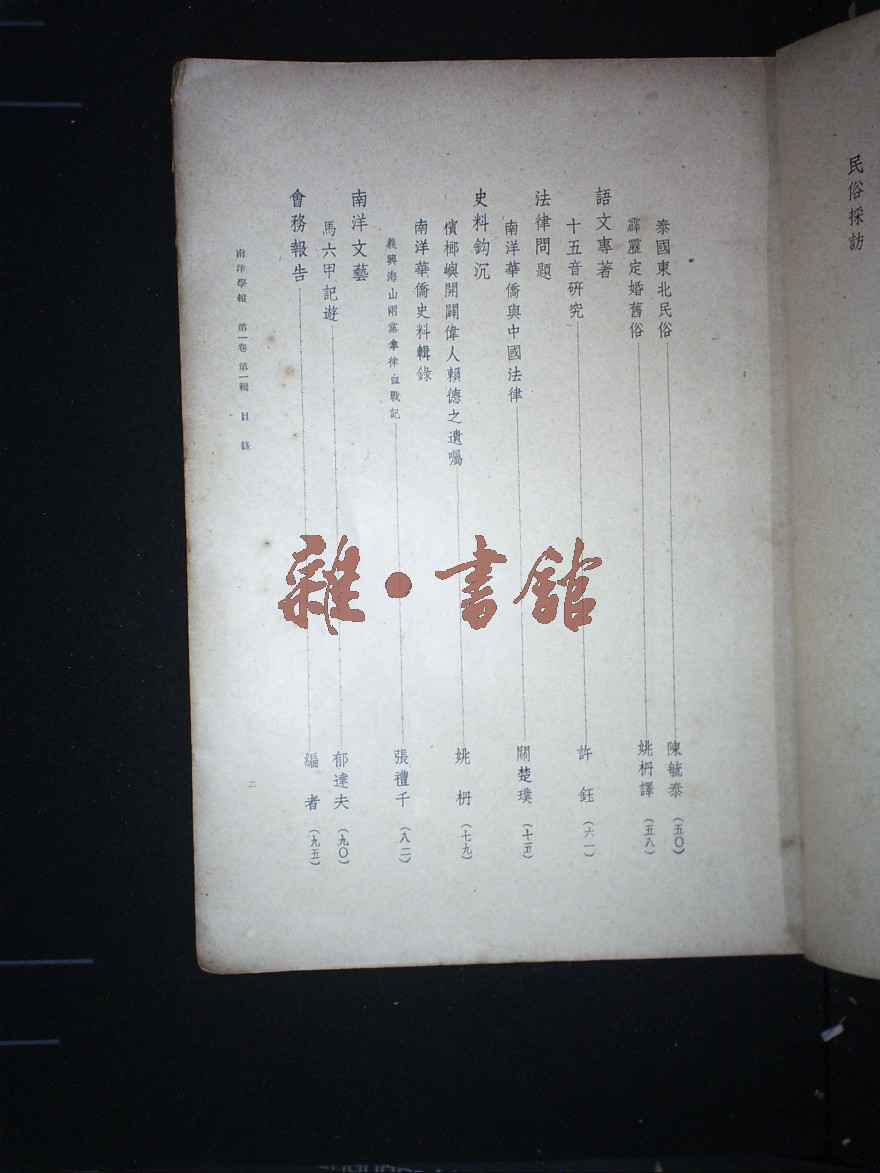 民俗採訪
泰國東北民俗 陳毓泰 (五〇)
霹靂定婚舊俗 姚枬譯 (五八)
語文專著
十五音研究 許鈺 (六一)
法律問題
南洋華僑與中國法律 關楚璞 (七五)
史料鈎沉
檳榔嶼開闢偉人賴德之遺囑 姚枬 (七九)
南洋華僑史料輯錄
義興海山兩黨拿律血戰記 張禮千 (八二)
南洋文藝
馬六甲記遊 郁達夫 (九〇)
會務報告 編者 (九五)
南洋學報 第一卷 第一輯 目錄
二
雜·書館